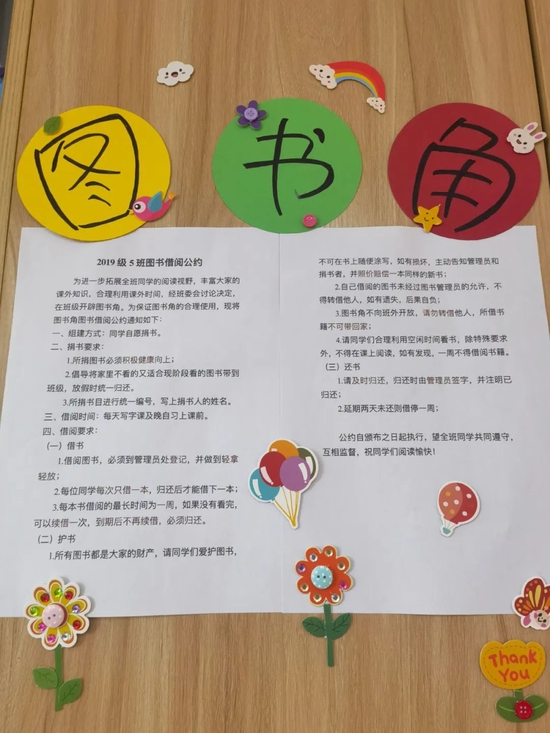 图书角
2019级5班图书借阅公约
为进一步拓展全班同学的阅读视野，丰富大家的
课外知识，合理利用课外时间，经班委会讨论决定，
在班级开辟图书角。为保证图书角的合理使用，现将
图书角图书借阅公约通知如下：
一、组建方式：同学自愿捐书。
二、捐书要求：
1.所捐图书必须积极健康向上；
2.倡导将家里不看的又适合现阶段看的图书带到
班级，放假时统一归还。
3.所捐书目进行统一编号，写上捐书人的姓名。
三、借阅时间：每天写字课及晚自习上课前。
四、借阅要求：
（一）借书
1.借阅图书，必须到管理员处登记，并做到轻拿
轻放；
2.每位同学每次只借一本，归还后才能借下一本；
3.每本书借阅的最长时间为一周，如果没有看完，
可以续借一次，到期后不再续借，必须归还。
（二）护书
1.所有图书都是大家的财产，请同学们爱护图书，
不可在书上随便涂写，如有损坏，主动告知管理员和
捐书者，并照价赔偿一本同样的新书；
2.自己借阅的图书未经过图书管理员的允许，不
得转借他人，如有遗失，后果自负；
3.图书角不向班外开放，请勿转借他人，所借书
籍不可带回家；
4.请同学们合理利用空闲时间看书，除特殊要求
外，不得在课上阅读，如有发现，一周不得借阅书籍。
（三）还书
1.请及时归还，归还时由管理员签字，并注明已
归还；
2.延期两天未还则借停一周；
公约自颁布之日起执行，望全班同学共同遵守，
互相监督，祝同学们阅读愉快！
Thank
You